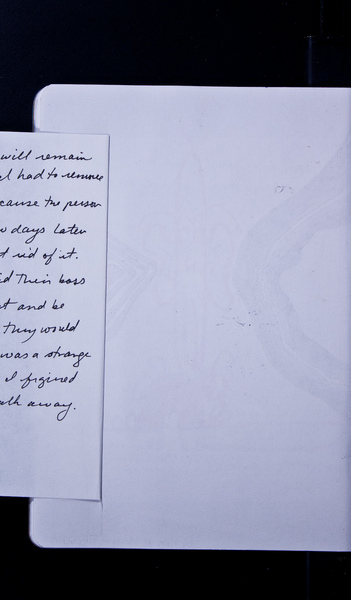 will remain
I had to remove
cause the person
days later
rid of it.
their boss
and be
they would
was a strange
I figured
away.